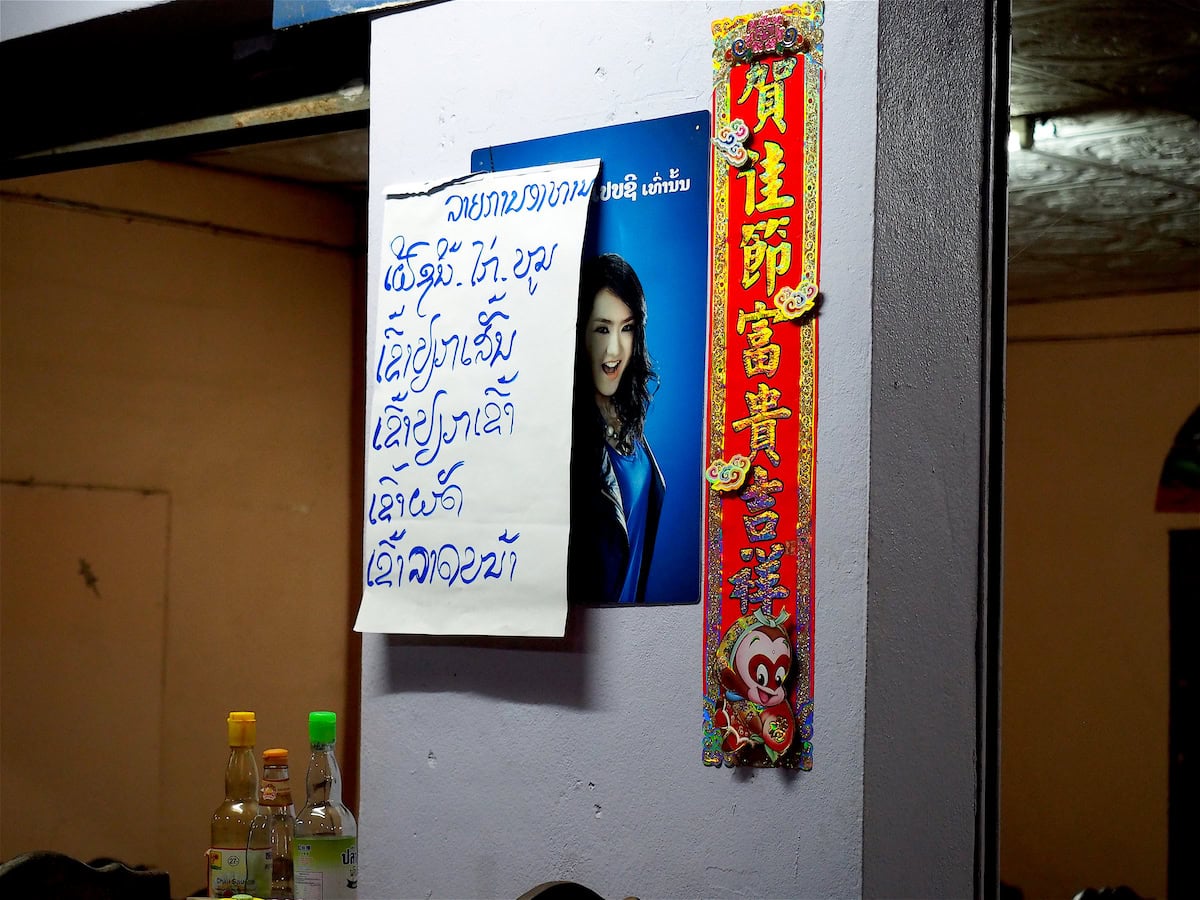 ລາຍການອາຫານ
ເຝີຊີ້ນ. ໄກ່. ໝູ
ເຂົ້າປຽກເສັ້ນ
ເຂົ້າປຽກເຂົ້າ
ເຂົ້າຜັດ
ເຂົ້າລາດໜ້າ
ເປບຊີ ເທົ່ານັ້ນ
賀佳節富貴吉祥
27